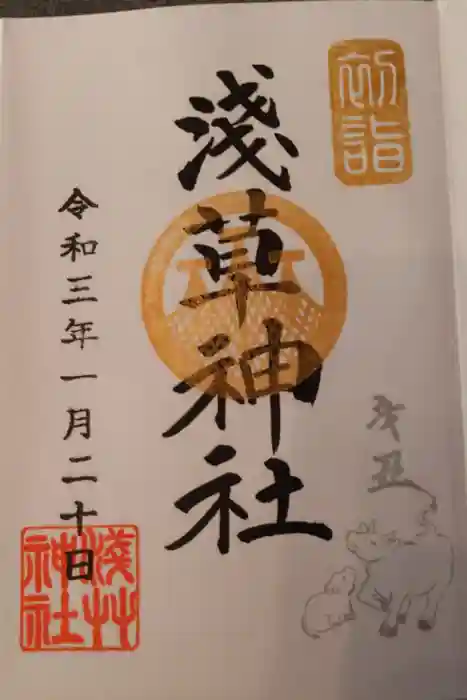 初詣
辛丑
淺草神社
令和三年一月二十日
淺艸
神社